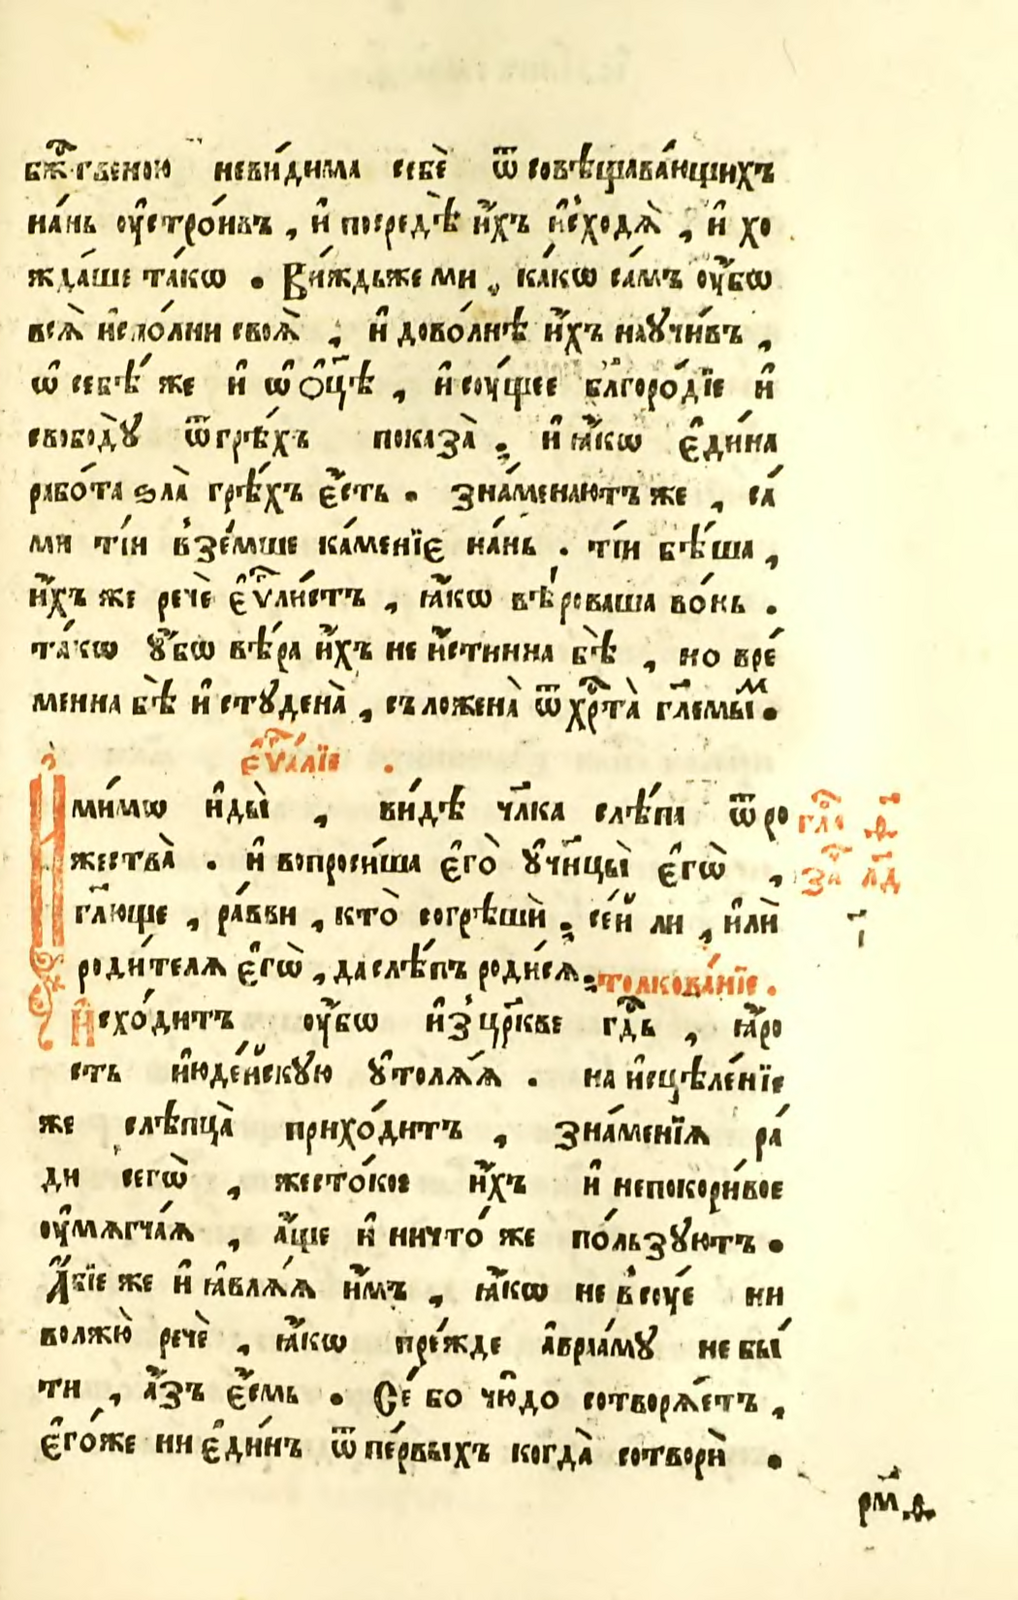 бжⷭ҇твеною неви́дима себѐ ѿ совѣщава́ющихъ
на́нь ᲂу҆стро́ивъ , и҆ посредѣ̀ и҆́хъ и҆сходѧ̀ , и҆ хо
жда́ше та́кѡ . Ви́ждьже ми , ка́кѡ са́мъ ᲂу҆́бѡ
всѧ̀ и҆спо́лни своѧ̀ , и҆ дово́лнѣ и҆́хъ научи́въ ,
ѡ҆ себѣ́ же и҆ ѡ҆ Ѻ҆ц҃ѣ̀ , и҆ сꙋ́щее бл҃горо́дїе и҆
свобо́дꙋ ѿ грѣ́хъ показа̀ , и҆ ꙗ҆́кѡ є҆ди́на
рабо́та ѕла̀ грѣ́хъ є҆́сть . зна́менаютъ же , са́
ми ті́и взе́мше ка́менїе на́нь . ті́и бѣ́ша ,
и҆́хъ же речѐ є҆ѵⷢ҇листъ , ꙗ҆́кѡ вѣ́роваша во́нь .
та́кѡ ᲂу҆́бѡ вѣ́ра и҆́хъ не и҆́стинна бѣ̀ , но вре́
менна бѣ̀ и҆ стꙋдена̀ , съложена̀ ѿ хрⷭ҇та̀ гл҃емыⷨ .
є҆ѵⷢ҇лїе .
И҆ мимѡ и҆ды̀ , ви́дѣ чл҃ка слѣ́па ѿ ро
жества̀ . и҆ вопроси́ша є҆го̀ ᲂу҆чн҃цы̀ є҆гѡ̀ ,
гл҃юще , ра́вви , кто̀ согрѣшѝ , се́й ли , и҆лѝ
роди́телѧ є҆гѡ̀ , да слѣ́пъ роди́сѧ , толкова́нїе .
И҆схо́дитъ ᲂу҆́бѡ и҆з цр҃кве гдⷭ҇ь , ꙗ҆́ро
сть и҆юде́йскꙋю ᲂу҆толѧ́ѧ . на и҆сцѣле́нїе
же слѣпца̀ прихо́дитъ , зна́менїѧ ра́
ди сегѡ̀ , жесто́кое и҆́хъ и҆ непокори́вое
ᲂу҆мѧгча́ѧ , а҆́ще и҆ ничто́ же по́льзꙋютъ .
А҆́бїе же и҆ ꙗ҆влѧ́ѧ и҆́мъ , ꙗ҆́кѡ не всꙋ́е ни
волжю̀ речѐ , ꙗ҆́кѡ пре́жде а҆враа́мꙋ не бы́
ти , а҆́зъ є҆́смь . Се́ бо чю́до сотворѧ́етъ ,
є҆го́же ни є҆ди́нъ ѿ пе́рвыхъ когда̀ сотворѝ .
рм҃.в.